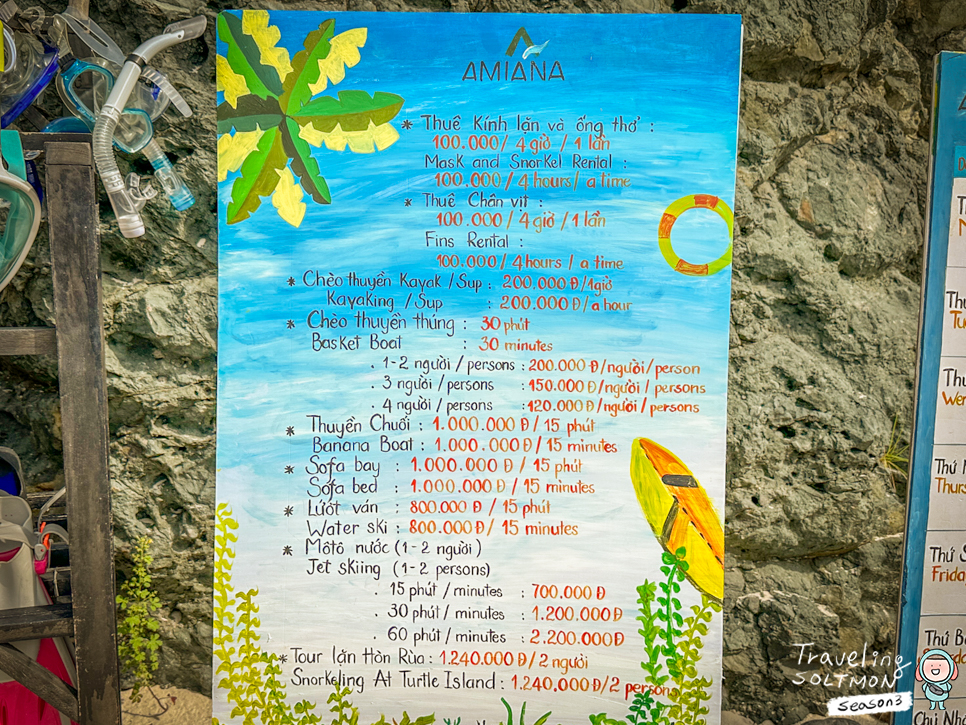 AMIANA
* Thuê Kính lặn và ống thở :
100.000/ 4 giờ / 1 lần
Mask and Snorkel Rental :
100.000 / 4 hours / a time
* Thuê Chân vịt :
100.000 / 4 giờ / 1 lần
Fins Rental :
100.000 / 4 hours / a time
* Chèo thuyền Kayak / Sup : 200.000 Đ/1giờ
Kayaking / Sup : 200.000 Đ/a hour
* Chèo thuyền thúng : 30 phút
Basket Boat : 30 minutes
. 1-2 người / persons : 200.000 Đ/người/person
. 3 người / persons : 150.000 Đ/người / persons
. 4 người / persons : 120.000 Đ/người / persons
* Thuyền Chuối : 1.000.000 Đ / 15 phút
Banana Boat : 1.000.000 Đ / 15 minutes
* Sofa bay : 1.000.000 Đ / 15 phút
Sofa bed : 1.000.000 Đ / 15 minutes
* Lướt ván : 800.000 Đ / 15 phút
Water ski : 800.000 Đ / 15 minutes
* Môtô nước (1-2 người)
Jet skiing (1-2 persons)
. 15 phút / minutes : 700.000 Đ
. 30 phút / minutes : 1.200.000 Đ
. 60 phút / minutes : 2.200.000 Đ
* Tour lặn Hòn Rùa : 1.240.000 Đ/ 2 người
Snorkeling At Turtle Island : 1.240.000 Đ/2 persons
Thứ
Thursd
Thứ
Frida
Thứ
Chủ
Traveling
SOLTMON
season3